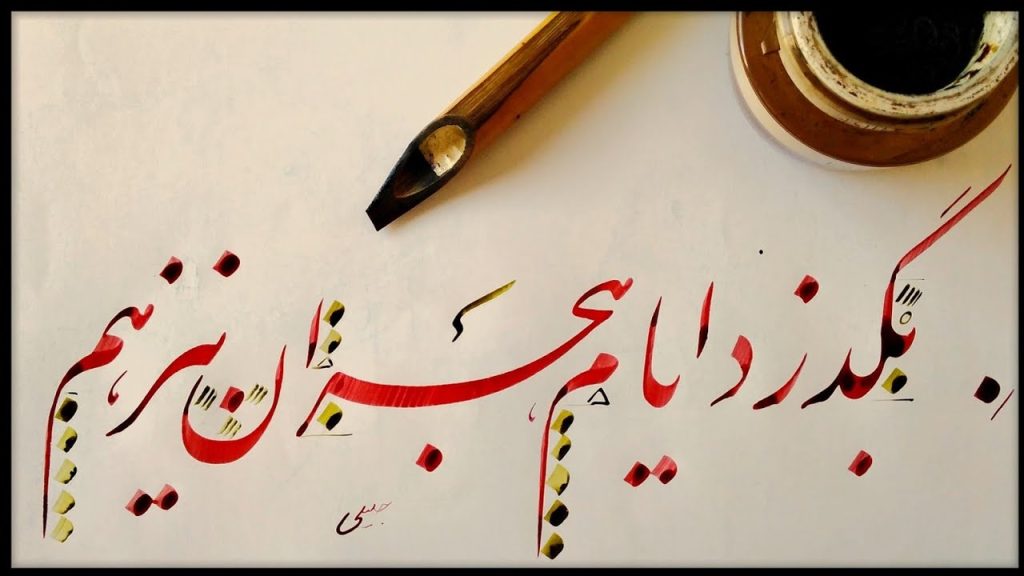 بگذرد ایام هجران نیز هم